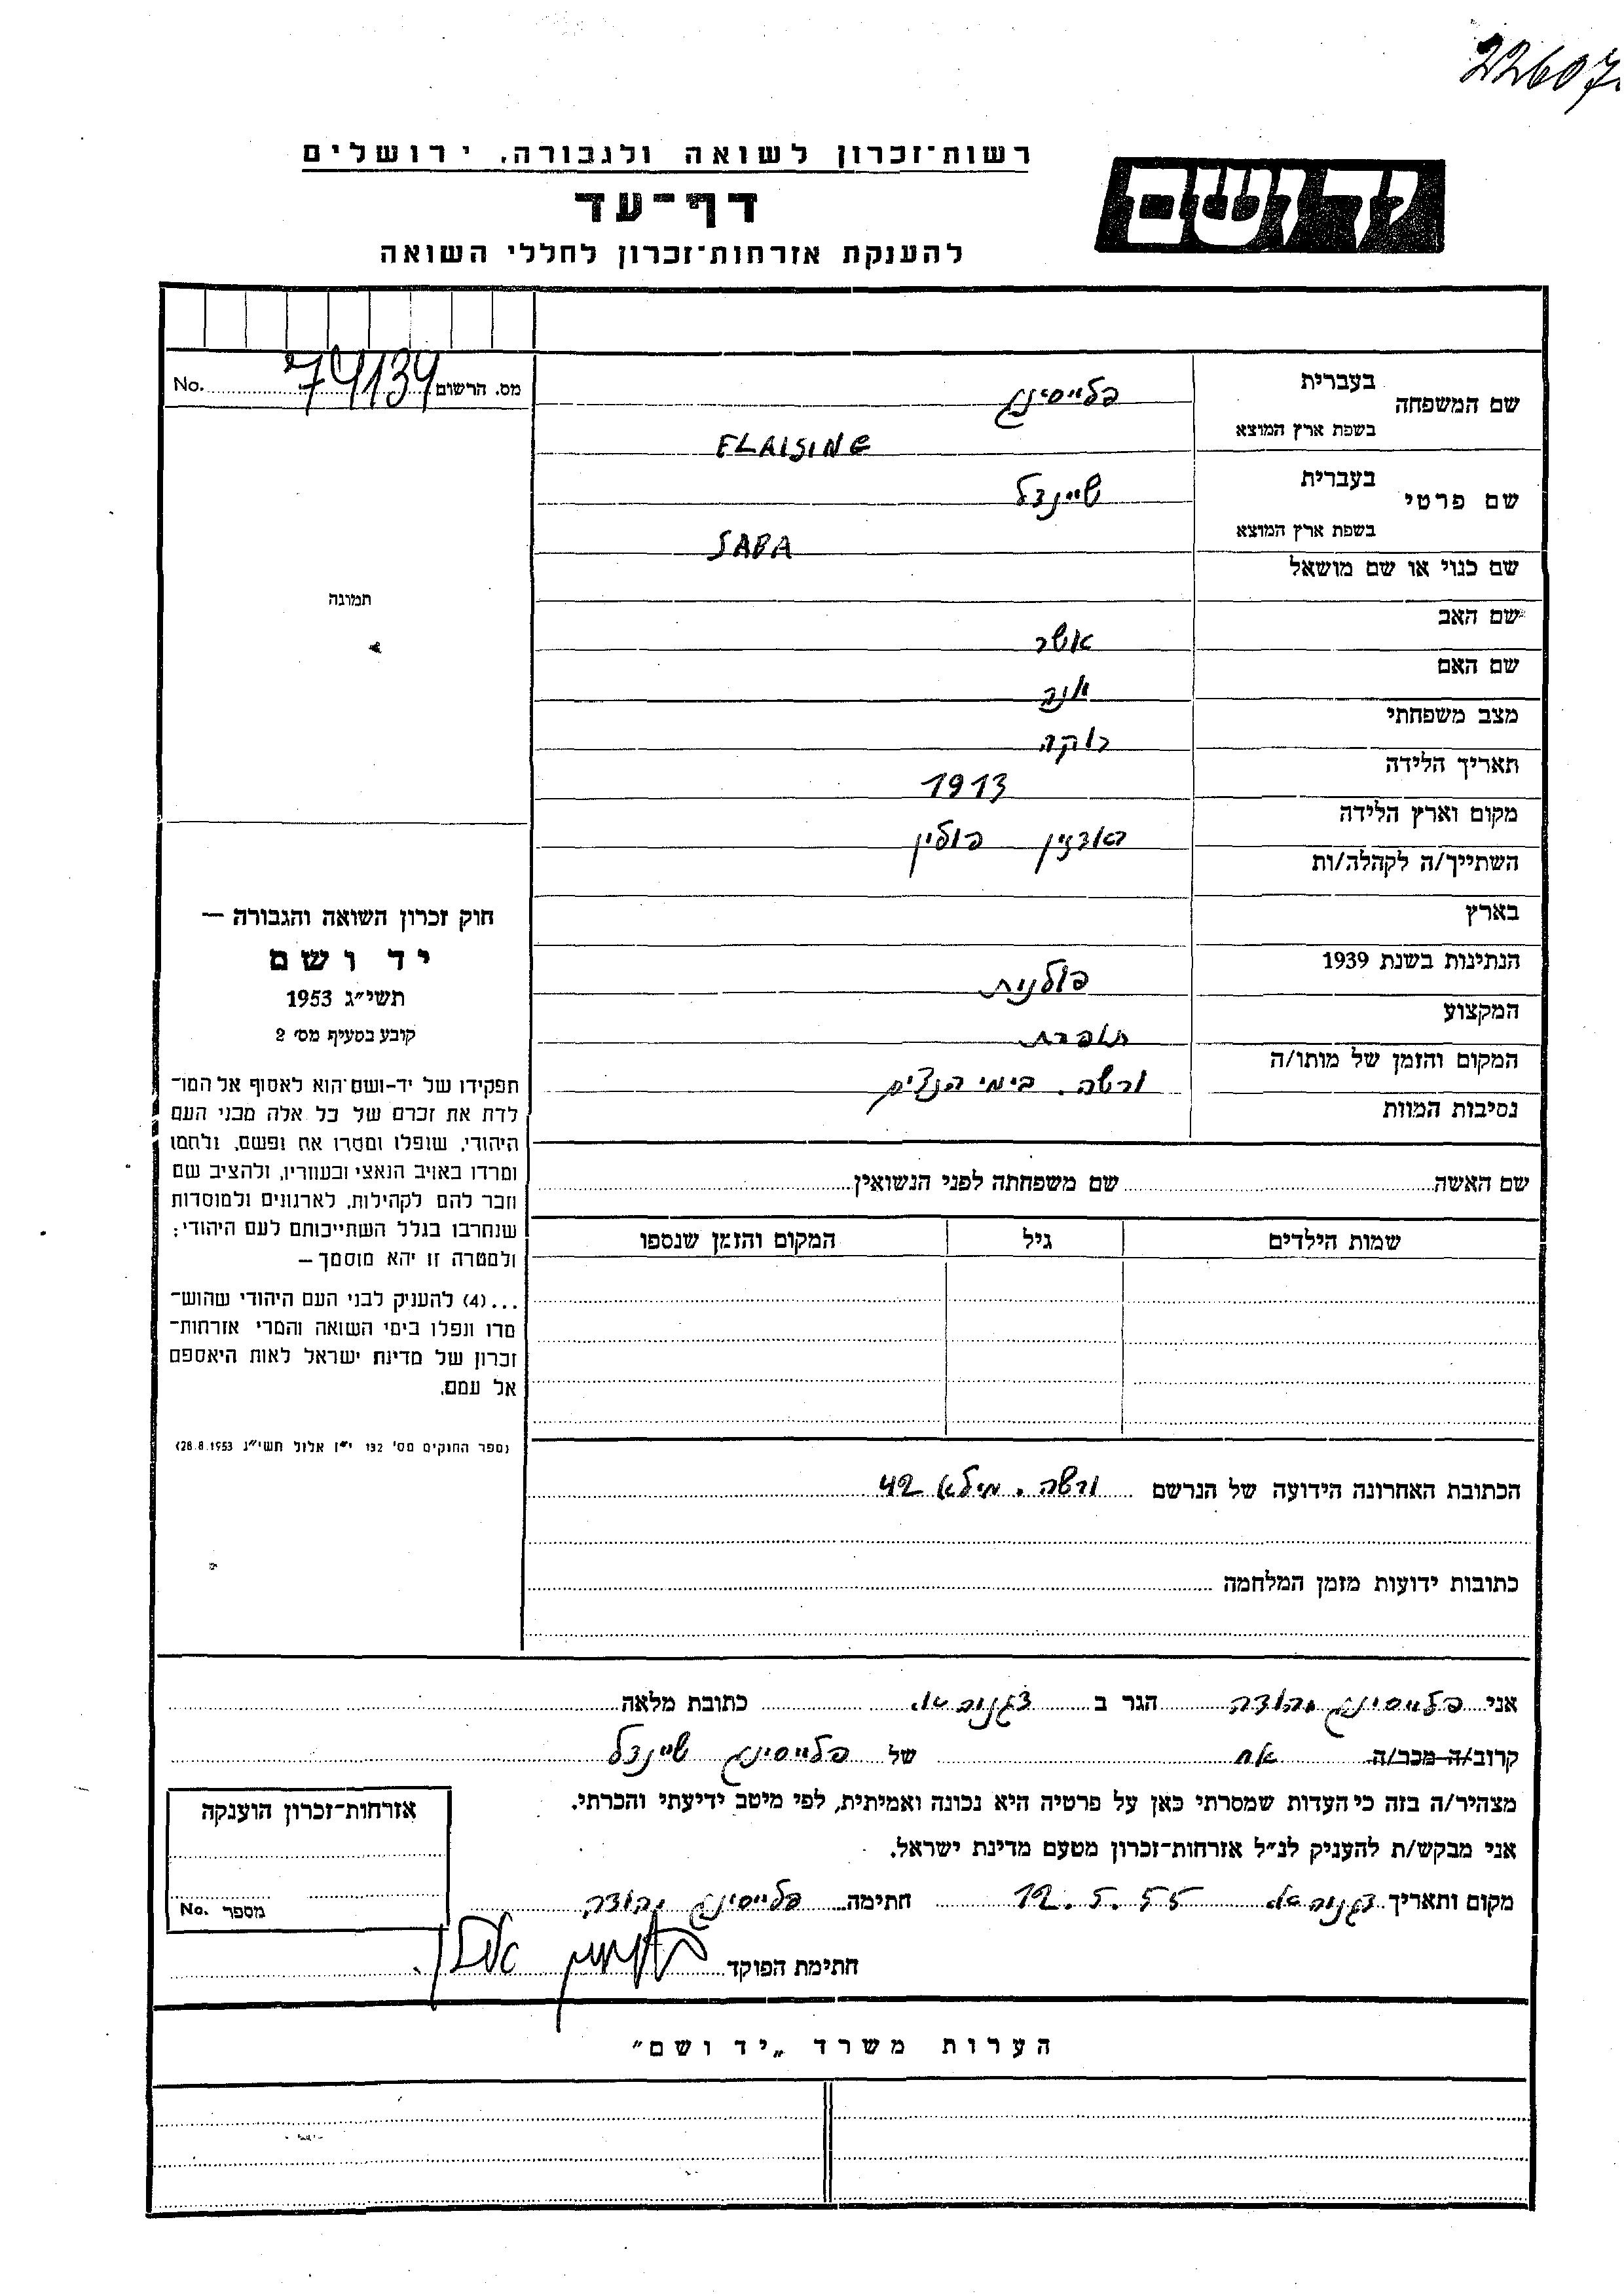 22607
רשות־זכרון לשואה ולגבורה, ירושלים
יד ושם
דף־עד
להענקת אזרחות־זכרון לחללי השואה
מס. הרשום 74134 No.
שם המשפחה
בעברית פלייסינג
בשפת ארץ המוצא FLAISING
שם פרטי
בעברית שיינדל
בשפת ארץ המוצא SABA
שם כנוי או שם מושאל
שם האב אשר
שם האם אנה
מצב משפחתי רוקה
תאריך הלידה 1913
מקום וארץ הלידה פולין
השתייך/ה לקהלה/ות
בארץ
הנתינות בשנת 1939 פולנית
המקצוע תופרת
המקום והזמן של מותו/ה ורשה. בימי הנצים
נסיבות המוות
תמונה
חוק זכרון השואה והגבורה —
יד ושם
תשי״ג 1953
קובע בסעיף מס׳ 2
תפקידו של יד-ושם הוא לאסוף אל המו־
לדת את זכרם של כל אלה מבני העם
היהודי, שנפלו ומסרו את נפשם, נלחמו
ומרדו באויב הנאצי ובעוזריו, ולהציב שם
וזכר להם לקהילות, לארגונים ולמוסדות
שנחרבו בגלל השתייכותם לעם היהודי;
ולמטרה זו יהא מוסמך —
...(4) להעניק לבני העם היהודי שהוש־
מדו ונפלו בימי השואה והמרי אזרחות־
זכרון של מדינת ישראל לאות היאספם
אל עמם.
(ספר החוקים מס׳ 132 י״ז אלול תשי״ג 28.8.1953)
שם האשה שם משפחתה לפני הנשואין
שמות הילדים גיל המקום והזמן שנספו
הכתובת האחרונה הידועה של הנרשם ורשה. מילא 42
כתובות ידועות מזמן המלחמה
אני פלייסינג יהודה הגר ב דגניה א. כתובת מלאה
קרוב/ה מכר/ה אח של פלייסינג שיינדל
מצהיר/ה בזה כי העדות שמסרתי כאן על פרטיה היא נכונה ואמיתית, לפי מיטב ידיעתי והכרתי.
אני מבקש/ת להעניק לנ״ל אזרחות־זכרון מטעם מדינת ישראל.
מקום ותאריך דגניה א. 12.5.55 חתימה פלייסינג יהודה
חתימת הפוקד
אזרחות־זכרון הוענקה
מספר No.
הערות משרד „יד ושם״